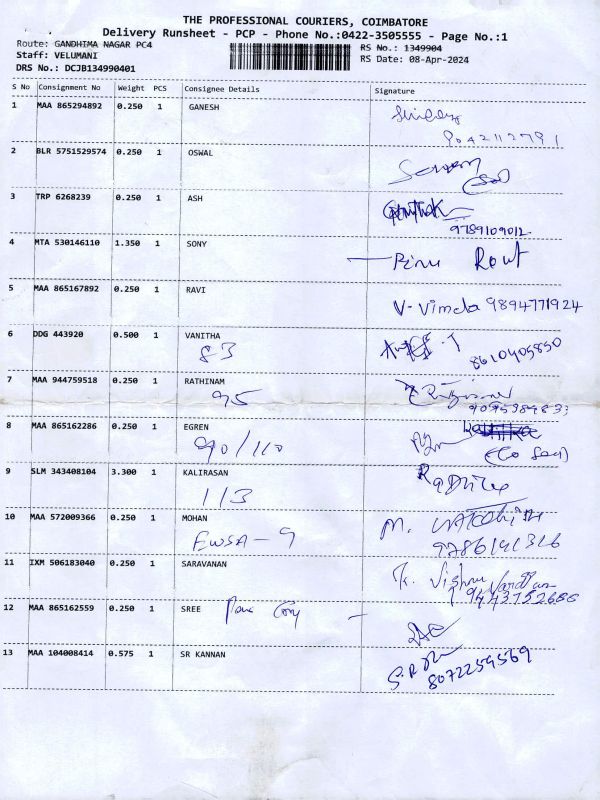 THE PROFESSIONAL COURIERS, COIMBATORE
Delivery Runsheet - PCP - Phone No.:0422-3505555 - Page No.:1
Route: GANDHIMA NAGAR PC4
RS No.: 1349904
Staff: VELUMANI
RS Date: 08-Apr-2024
DRS No.: DCJB134990401
S No Consignment No Weight PCS Consignee Details Signature
1 MAA 865294892 0.250 1 GANESH
9042112791
2 BLR 5751529574 0.250 1 OSWAL
3 TRP 6268239 0.250 1 ASH
9789109012
4 MTA 530146110 1.350 1 SONY Rout
5 MAA 865167892 0.250 1 RAVI V-Vimala 9894771924
6 DDG 443920 0.500 1 VANITHA
83 8610405850
7 MAA 944759518 0.250 1 RATHINAM
95
8 MAA 865162286 0.250 1 EGREN
90/110
9 SLM 343408104 3.300 1 KALIRASAN
113
10 MAA 572009366 0.250 1 MOHAN M.
EWSA-9
11 IXM 506183040 0.250 1 SARAVANAN Vishnu Vardhan
12 MAA 865162559 0.250 1 SREE
13 MAA 104008414 0.575 1 SR KANNAN
8072259569